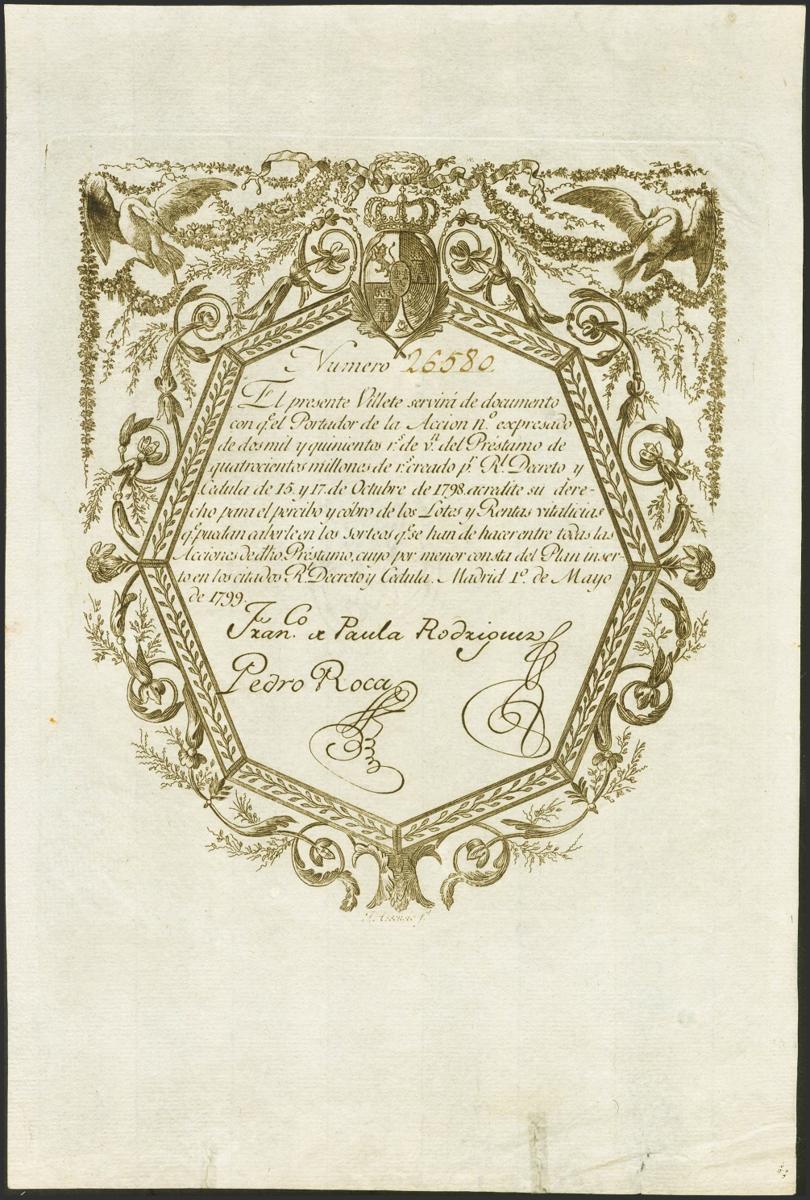 Numero 26580.
El presente Villete servirá de documento
con q.e el Portador de la Accion n.º expresado
de dos mil y quinientos r.s de v.n del Préstamo de
quatrocientos millones de r.s creado p.r R.l Decreto y
Cedula de 15. y 17. de Octubre de 1798. acredite su dere-
cho para el percibo y cobro de los Lotes y Rentas vitalicias
q.e puedan caberle en los sorteos q.e se han de hacer entre todas las
Acciones de dho. Préstamo, cuyo por menor consta del Plan inser-
to en los citados R.l Decreto y Cedula. Madrid 1.º de Mayo
de 1799.
Fran.co de Paula Rodriguez
Pedro Roca
J. Assensio f.t